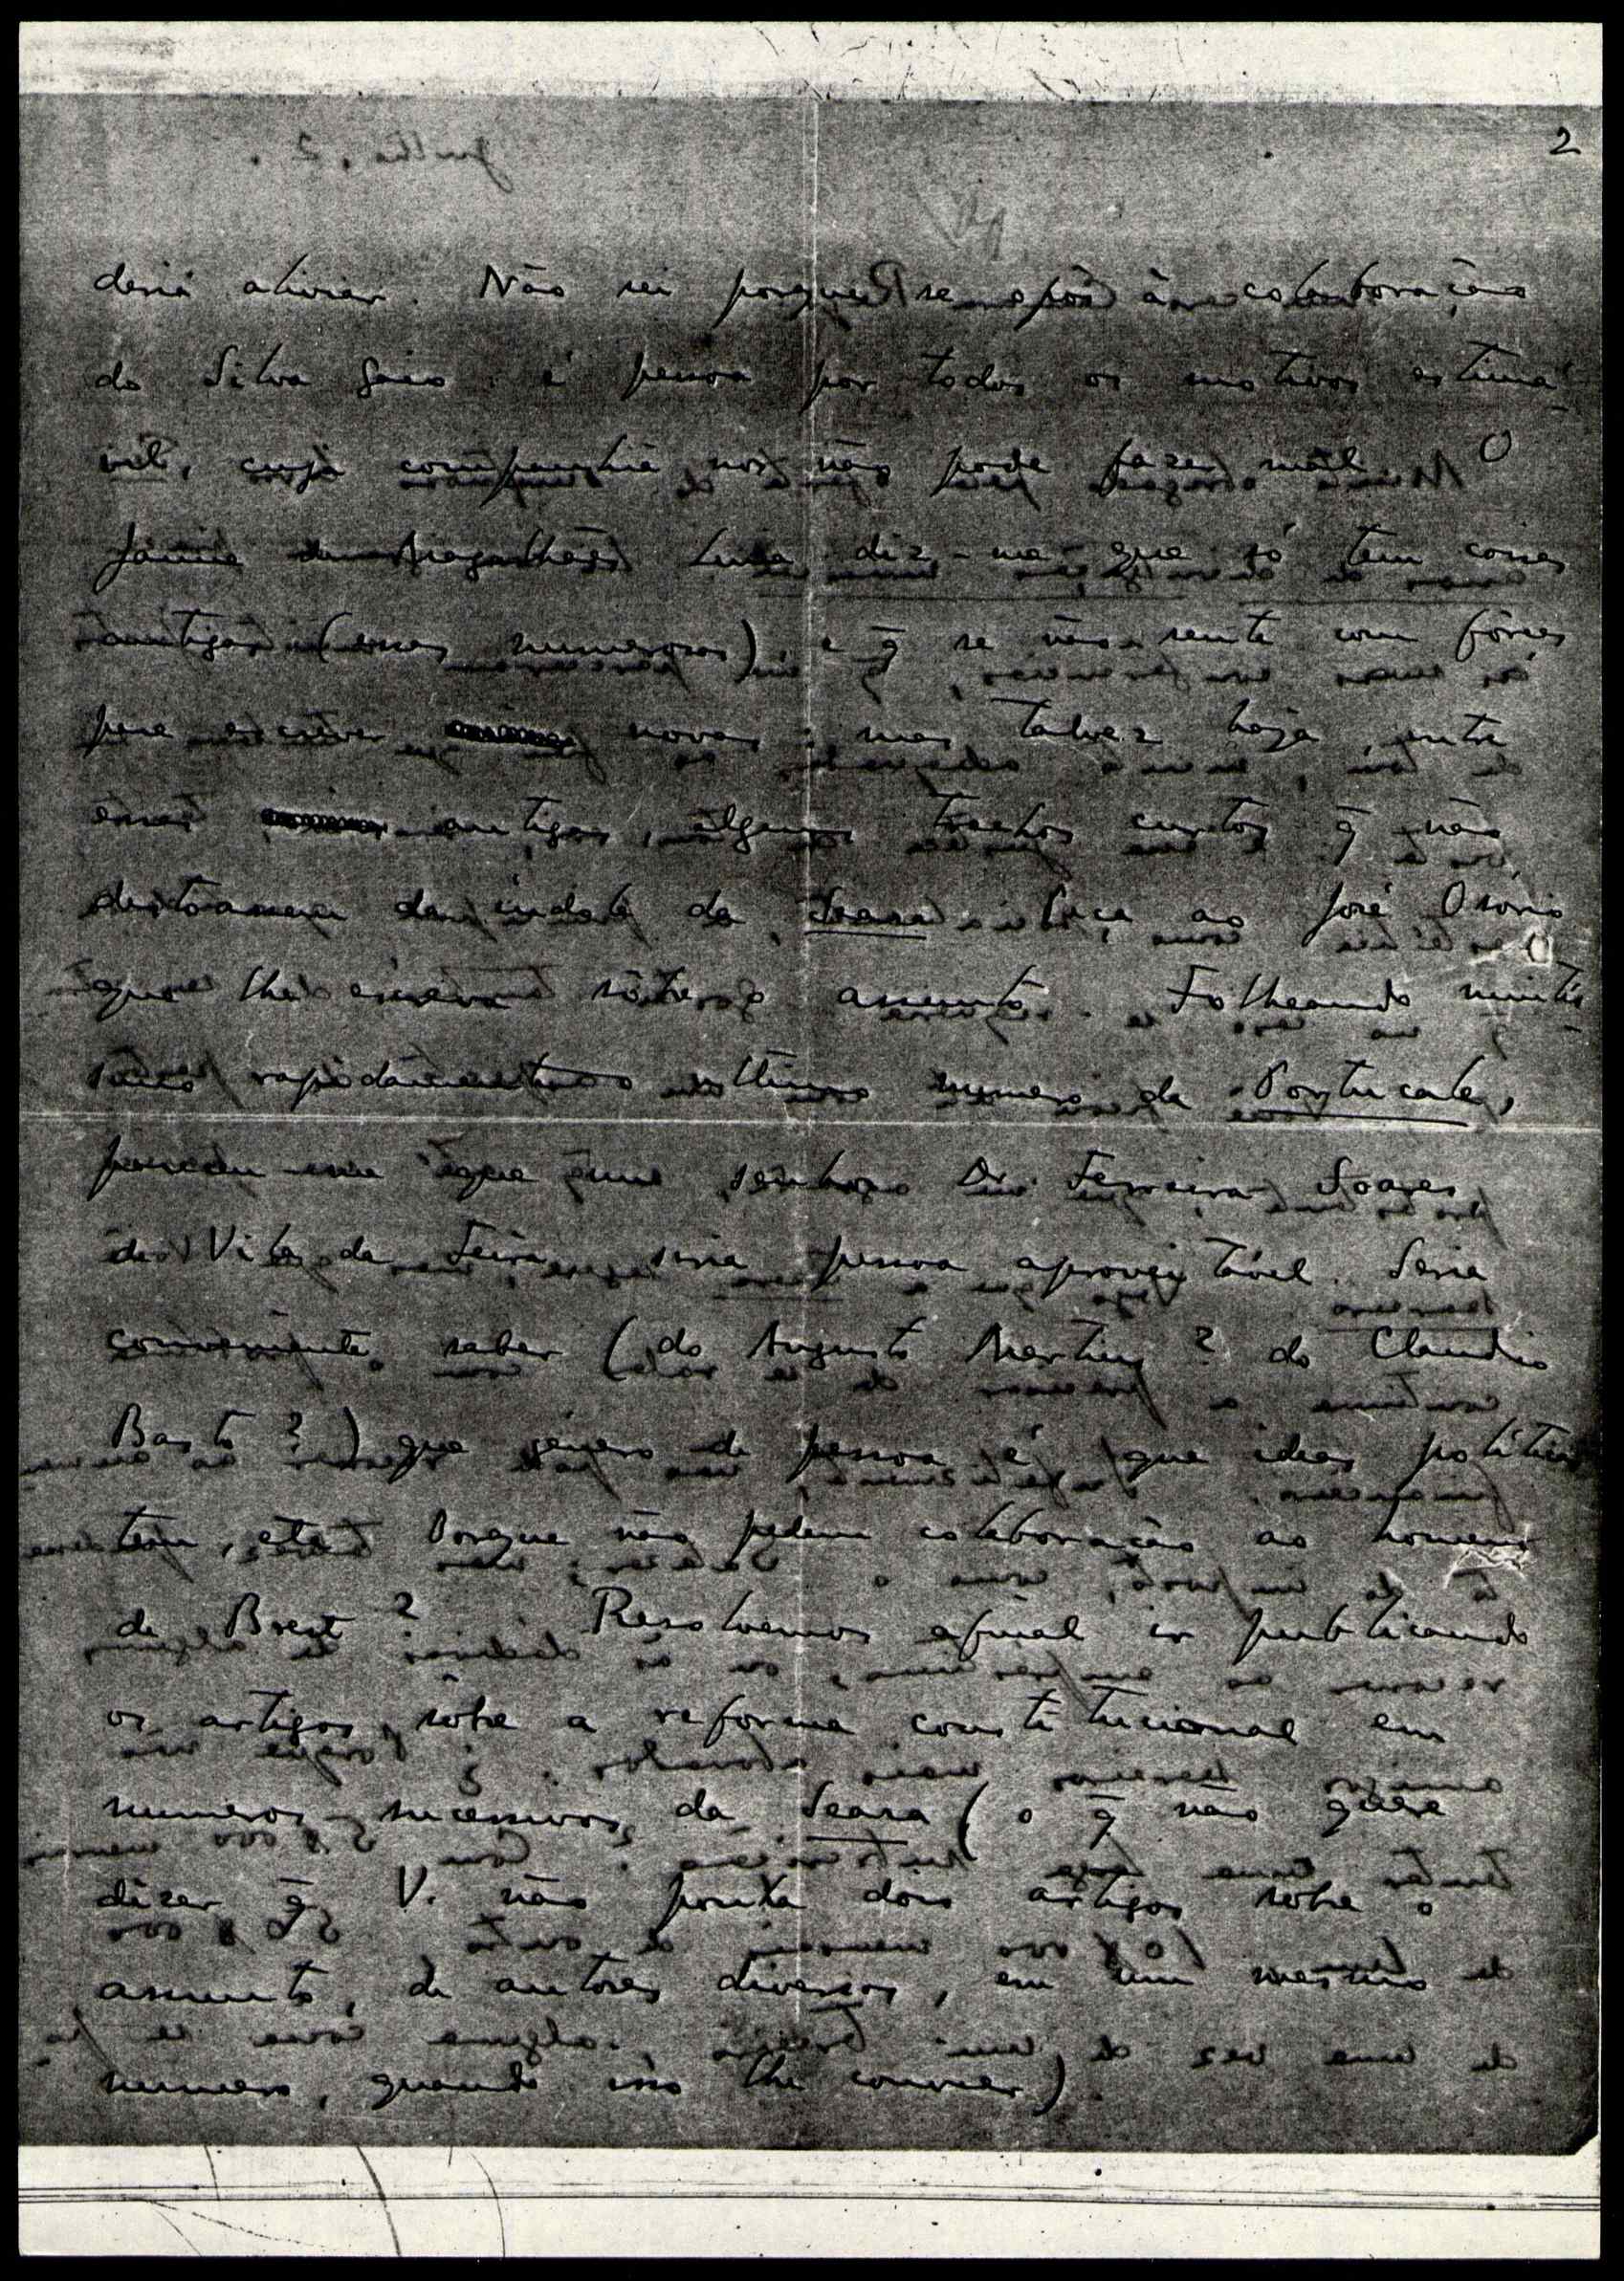 2
deria aliviar. Não sei porque se opôs à colaboração
do Silva Gaio: é pessoa por todos os motivos estimá-
vel, cuja companhia nos não pode fazer mal. O
Jaime de Magalhães Lima diz-me que só tem coisas
antigas (essas numerosas), e q̃ se não sente com fôrças
para escrever novas: mas talvez haja, entre
essas antigas, alguns trechos curtos q̃ não
destoassem da índole da Seara. Peça ao José Osório
que lhe escreva sôbre o assunto. Folheando muitís-
simo rapidamente o ultimo numero da Portucale,
pareceu-me que um senhor Dr. Ferreira Soares,
de Vila da Feira, seria pessoa aproveitável. Seria
conveniente saber (do Augusto Martins? do Claudio
Basto?) que género de pessoa é, que ideas politicas
tem, etc. Porque não pedem colaboração ao homem
de Brest? Resolvemos afinal ir publicando
os artigos sôbre a reforma constitucional em
numeros sucessivos da Seara (o q̃ não quere
dizer q̃ V. não ponha dois artigos sobre o
assunto, de autores diversos, em um mesmo
numero, quando isso lhe convier)